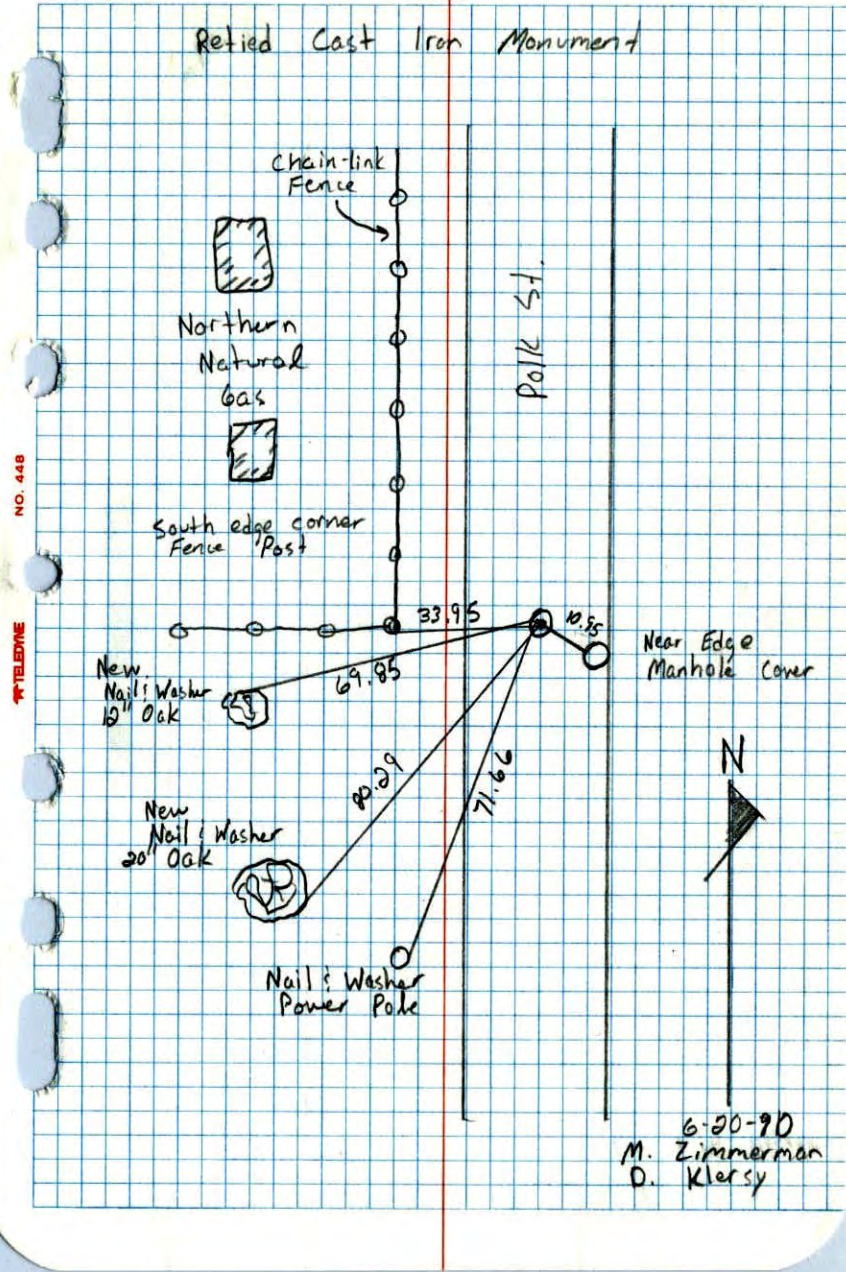 Retied Cast Iron Monument
Chain-link
Fence
Northern
Natural
Gas
Polk St.
South edge corner
Fence Post
33.95
Near Edge
Manhole Cover
New
Nail & Washer
12" Oak
69.85
80.29
71.66
New
Nail & Washer
20" Oak
Nail & Washer
Power Pole
N
6-20-90
M. Zimmerman
D. Klersy
NO. 448
TELEDYNE